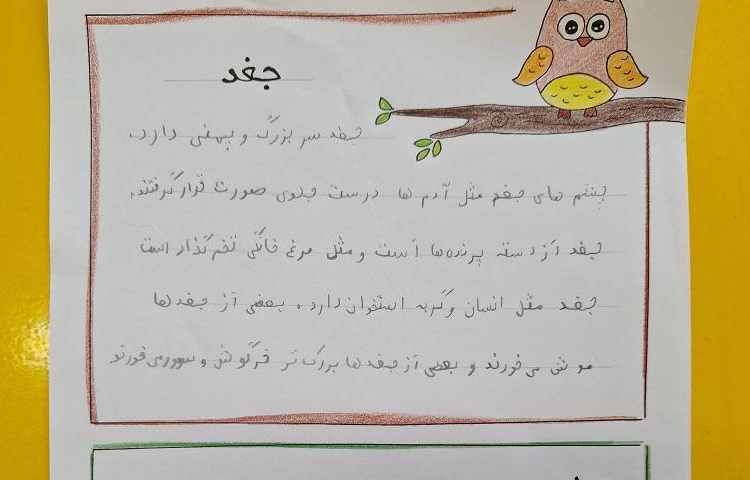 جغد
جغد سر بزرگ و پهنی دارد.
چشم های جغد مثل آدم ها درست جلوی صورت قرار گرفتند.
جغد از دسته پرنده‌ها است و مثل مرغ خانگی تخم گذار است
جغد مثل انسان و گربه استخوان دارد. بعضی از جغدها
موش می‌خورند و بعضی از جغدها بزرگ تر خرگوش و می‌خورند